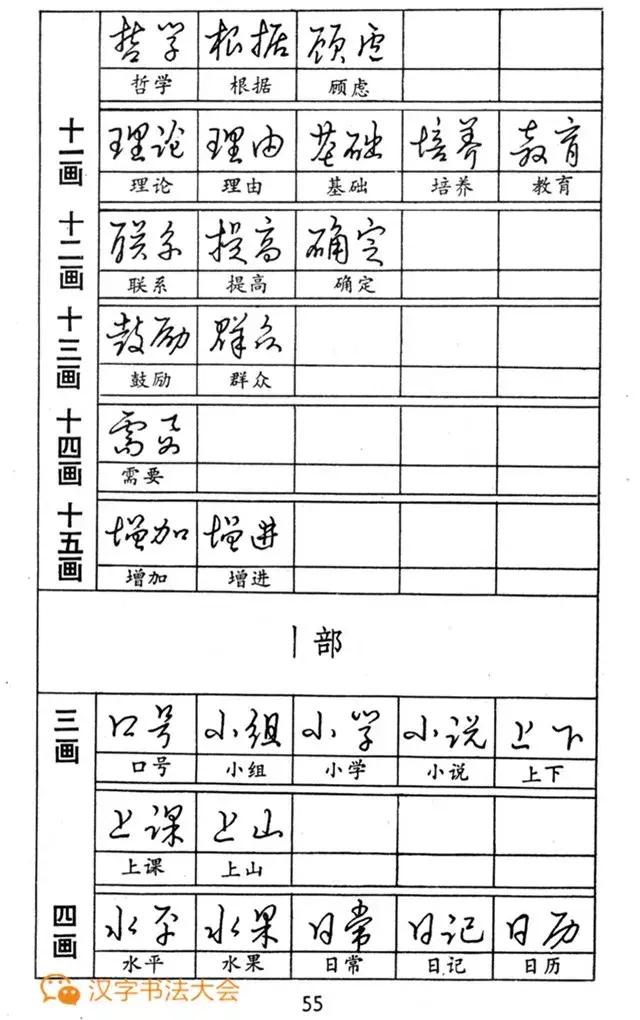 哲学 根据 顾虑
哲学 根据 顾虑
十一画 理论 理由 基础 培养 教育
理论 理由 基础 培养 教育
十二画 联系 提高 确定
联系 提高 确定
十三画 鼓励 群众
鼓励 群众
十四画 需要
需要
十五画 增加 增进
增加 增进
丨部
三画 口号 小组 小学 小说 上下
口号 小组 小学 小说 上下
上课 上山
上课 上山
四画 水平 水果 日常 日记 日历
水平 水果 日常 日记 日历
汉字书法大会
55